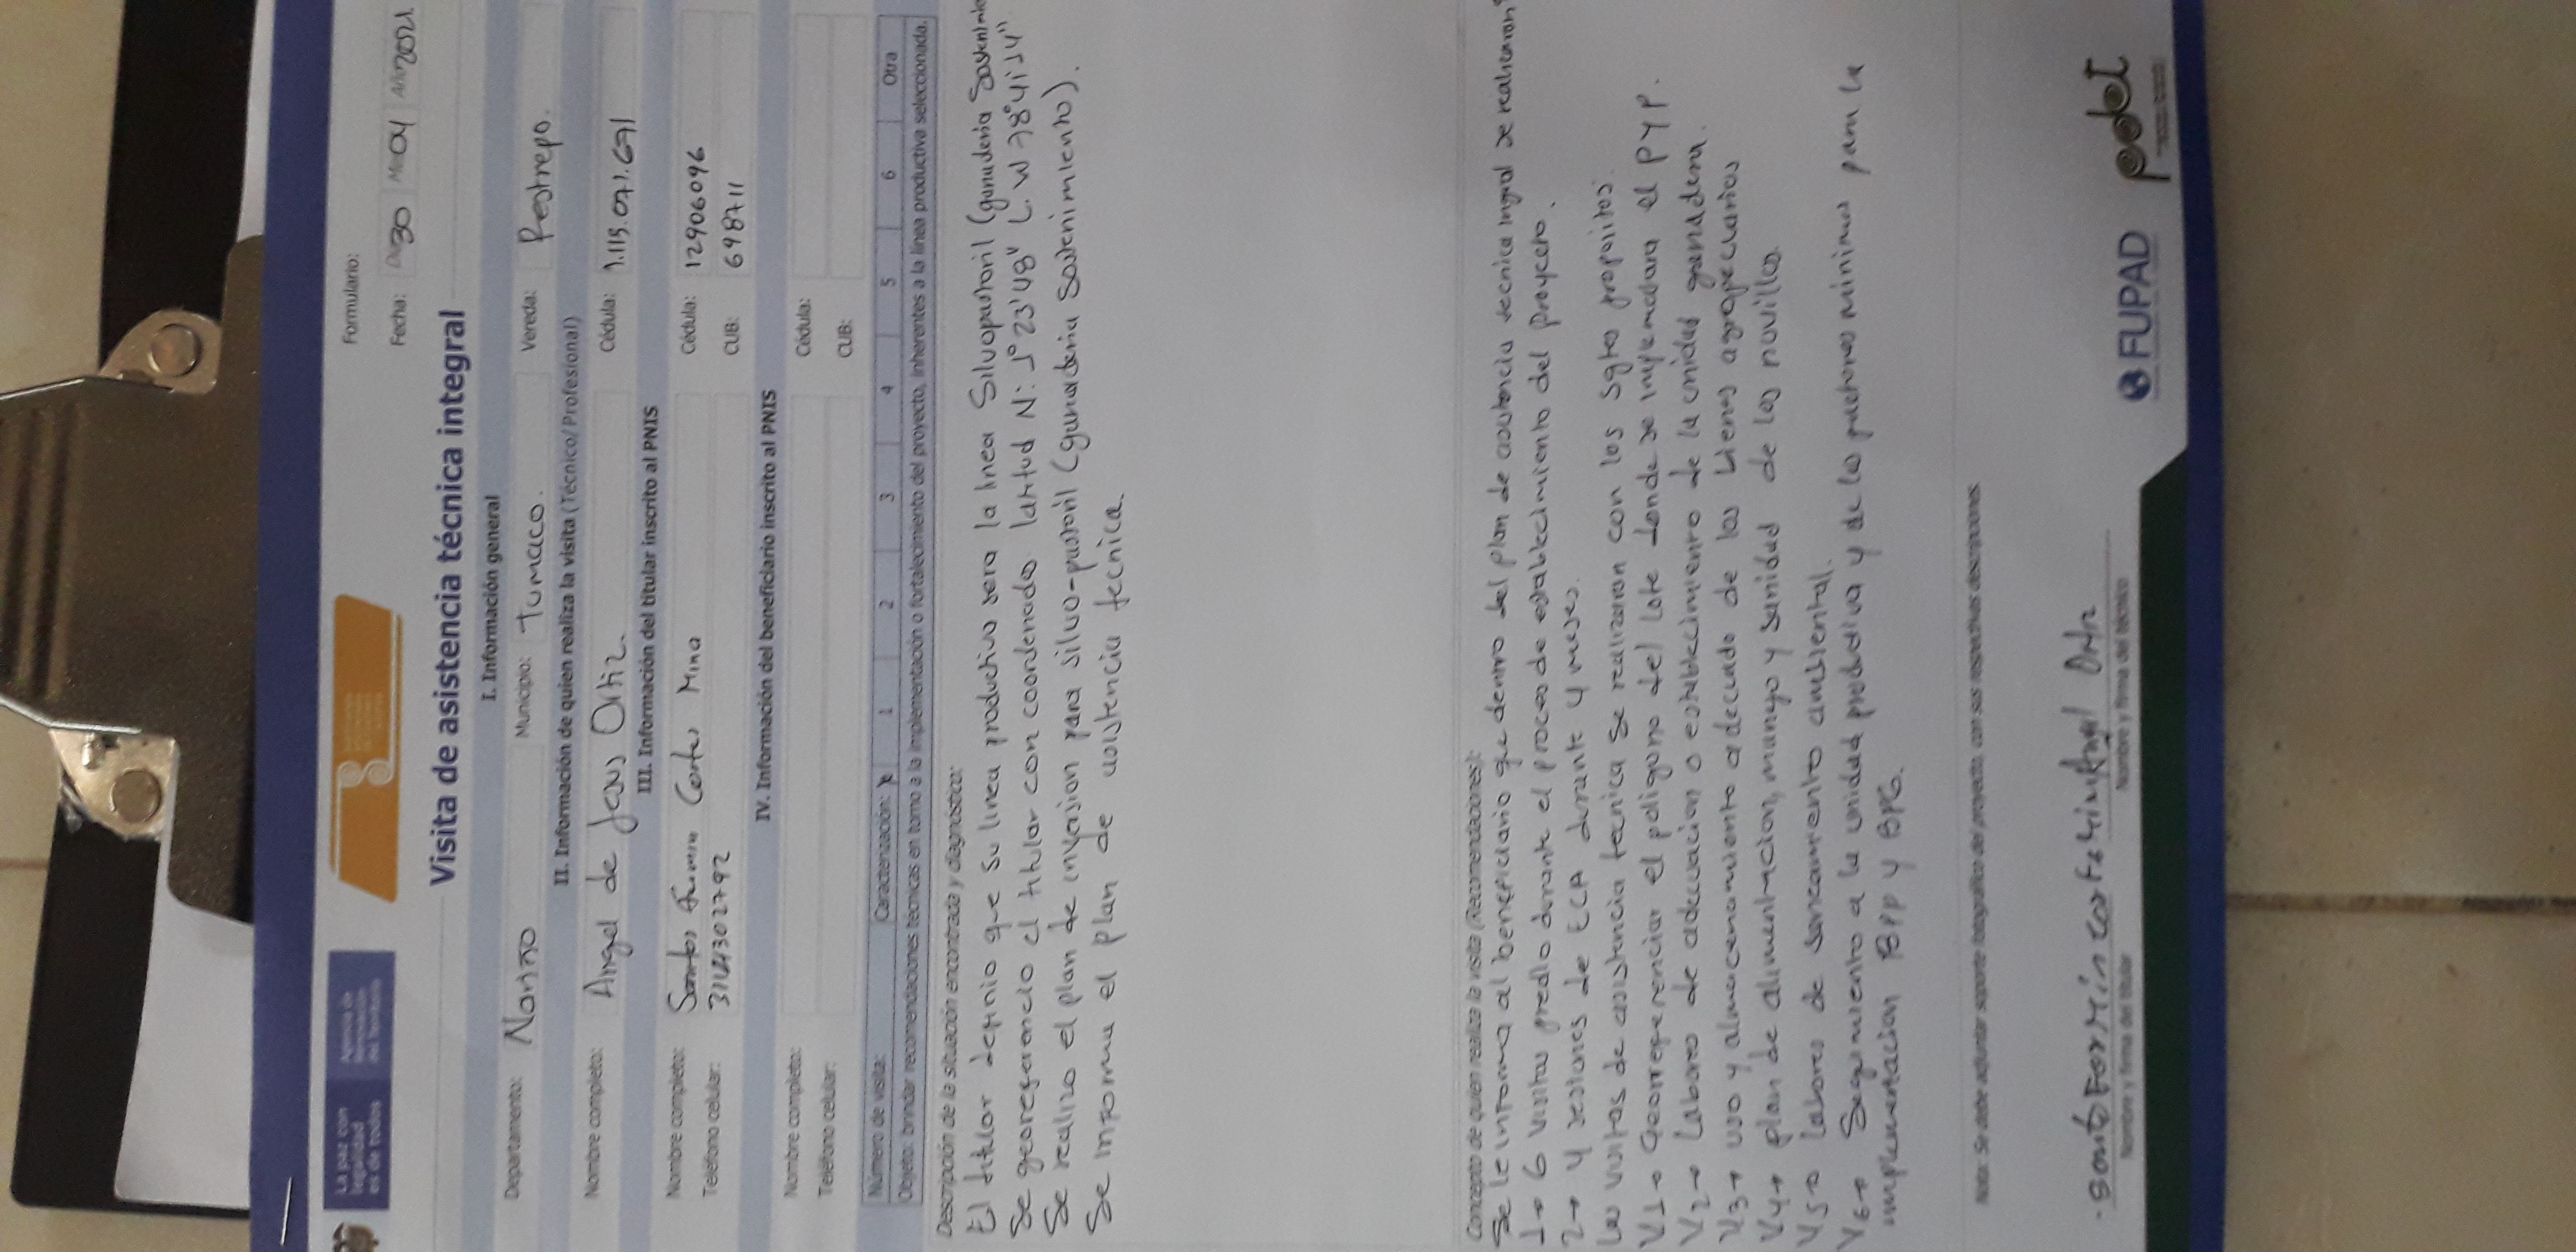 La paz con
legalidad
es de todos
Agencia de
Renovación
del Territorio
Formulario:
Fecha: 30 Mes 04 Año 2021
Visita de asistencia técnica integral
I. Información general
Departamento: Nariño Municipio: Tumaco. Vereda: Restrepo.
II. Información de quien realiza la visita (Técnico/Profesional)
Nombre completo: Angel de Jesus Ortiz. Cédula: 1.115.071.671
III. Información del titular inscrito al PNIS
Nombre completo: Santos Fermin Cortes Mina Cédula: 12906096
Teléfono celular: 3114302792 CUB: 698711
IV. Información del beneficiario inscrito al PNIS
Nombre completo: Cédula:
Teléfono celular: CUB:
Número de visita: Caracterización: X 1 2 3 4 5 6 Otra
Objeto: brindar recomendaciones técnicas en torno a la implementación o fortalecimiento del proyecto, inherentes a la línea productiva seleccionada.
Descripción de la situación encontrada y diagnóstico:
El titular definio que su linea productiva sera la linea Silvopastoril (ganaderia Sostenimiento
Se georeferencio el titular con coordenadas latitud N: 1° 23' 48" L. W 78° 41' 54"
Se realizo el plan de inversion para silvo-pastoril (ganaderia sostenimiento).
Se informa el plan de asistencia tecnica.
Concepto de quien realiza la visita (Recomendaciones):
Se le informa al beneficiario que dentro del plan de asistencia tecnica ingral se realizaran
1→ 6 visitas predio durante el proceso de establecimiento del proyecto.
2→ 4 sesiones de ECA durante 4 meses.
Las visitas de asistencia tecnica se realizaran con los sgtes propositos:
V1→ Georreferenciar el poligono del lote donde se implementara el PYP.
V2→ Labores de adecuacion o establecimiento de la unidad ganadera.
V3→ uso y almacenamiento adecuado de los bienes agropecuarios
V4→ plan de alimentacion, manejo y sanidad de los novillos.
V5→ labores de saneamiento ambiental.
V6→ Seguimiento a la unidad productiva y de los patrones minimos para la
implementacion BPP y BPG.
Nota: Se debe adjuntar soporte fotográfico del proyecto con sus respectivas descripciones.
santo Fermin cortes mina Angel Ortiz
Nombre y firma del titular Nombre y firma del técnico
FUPAD pdet